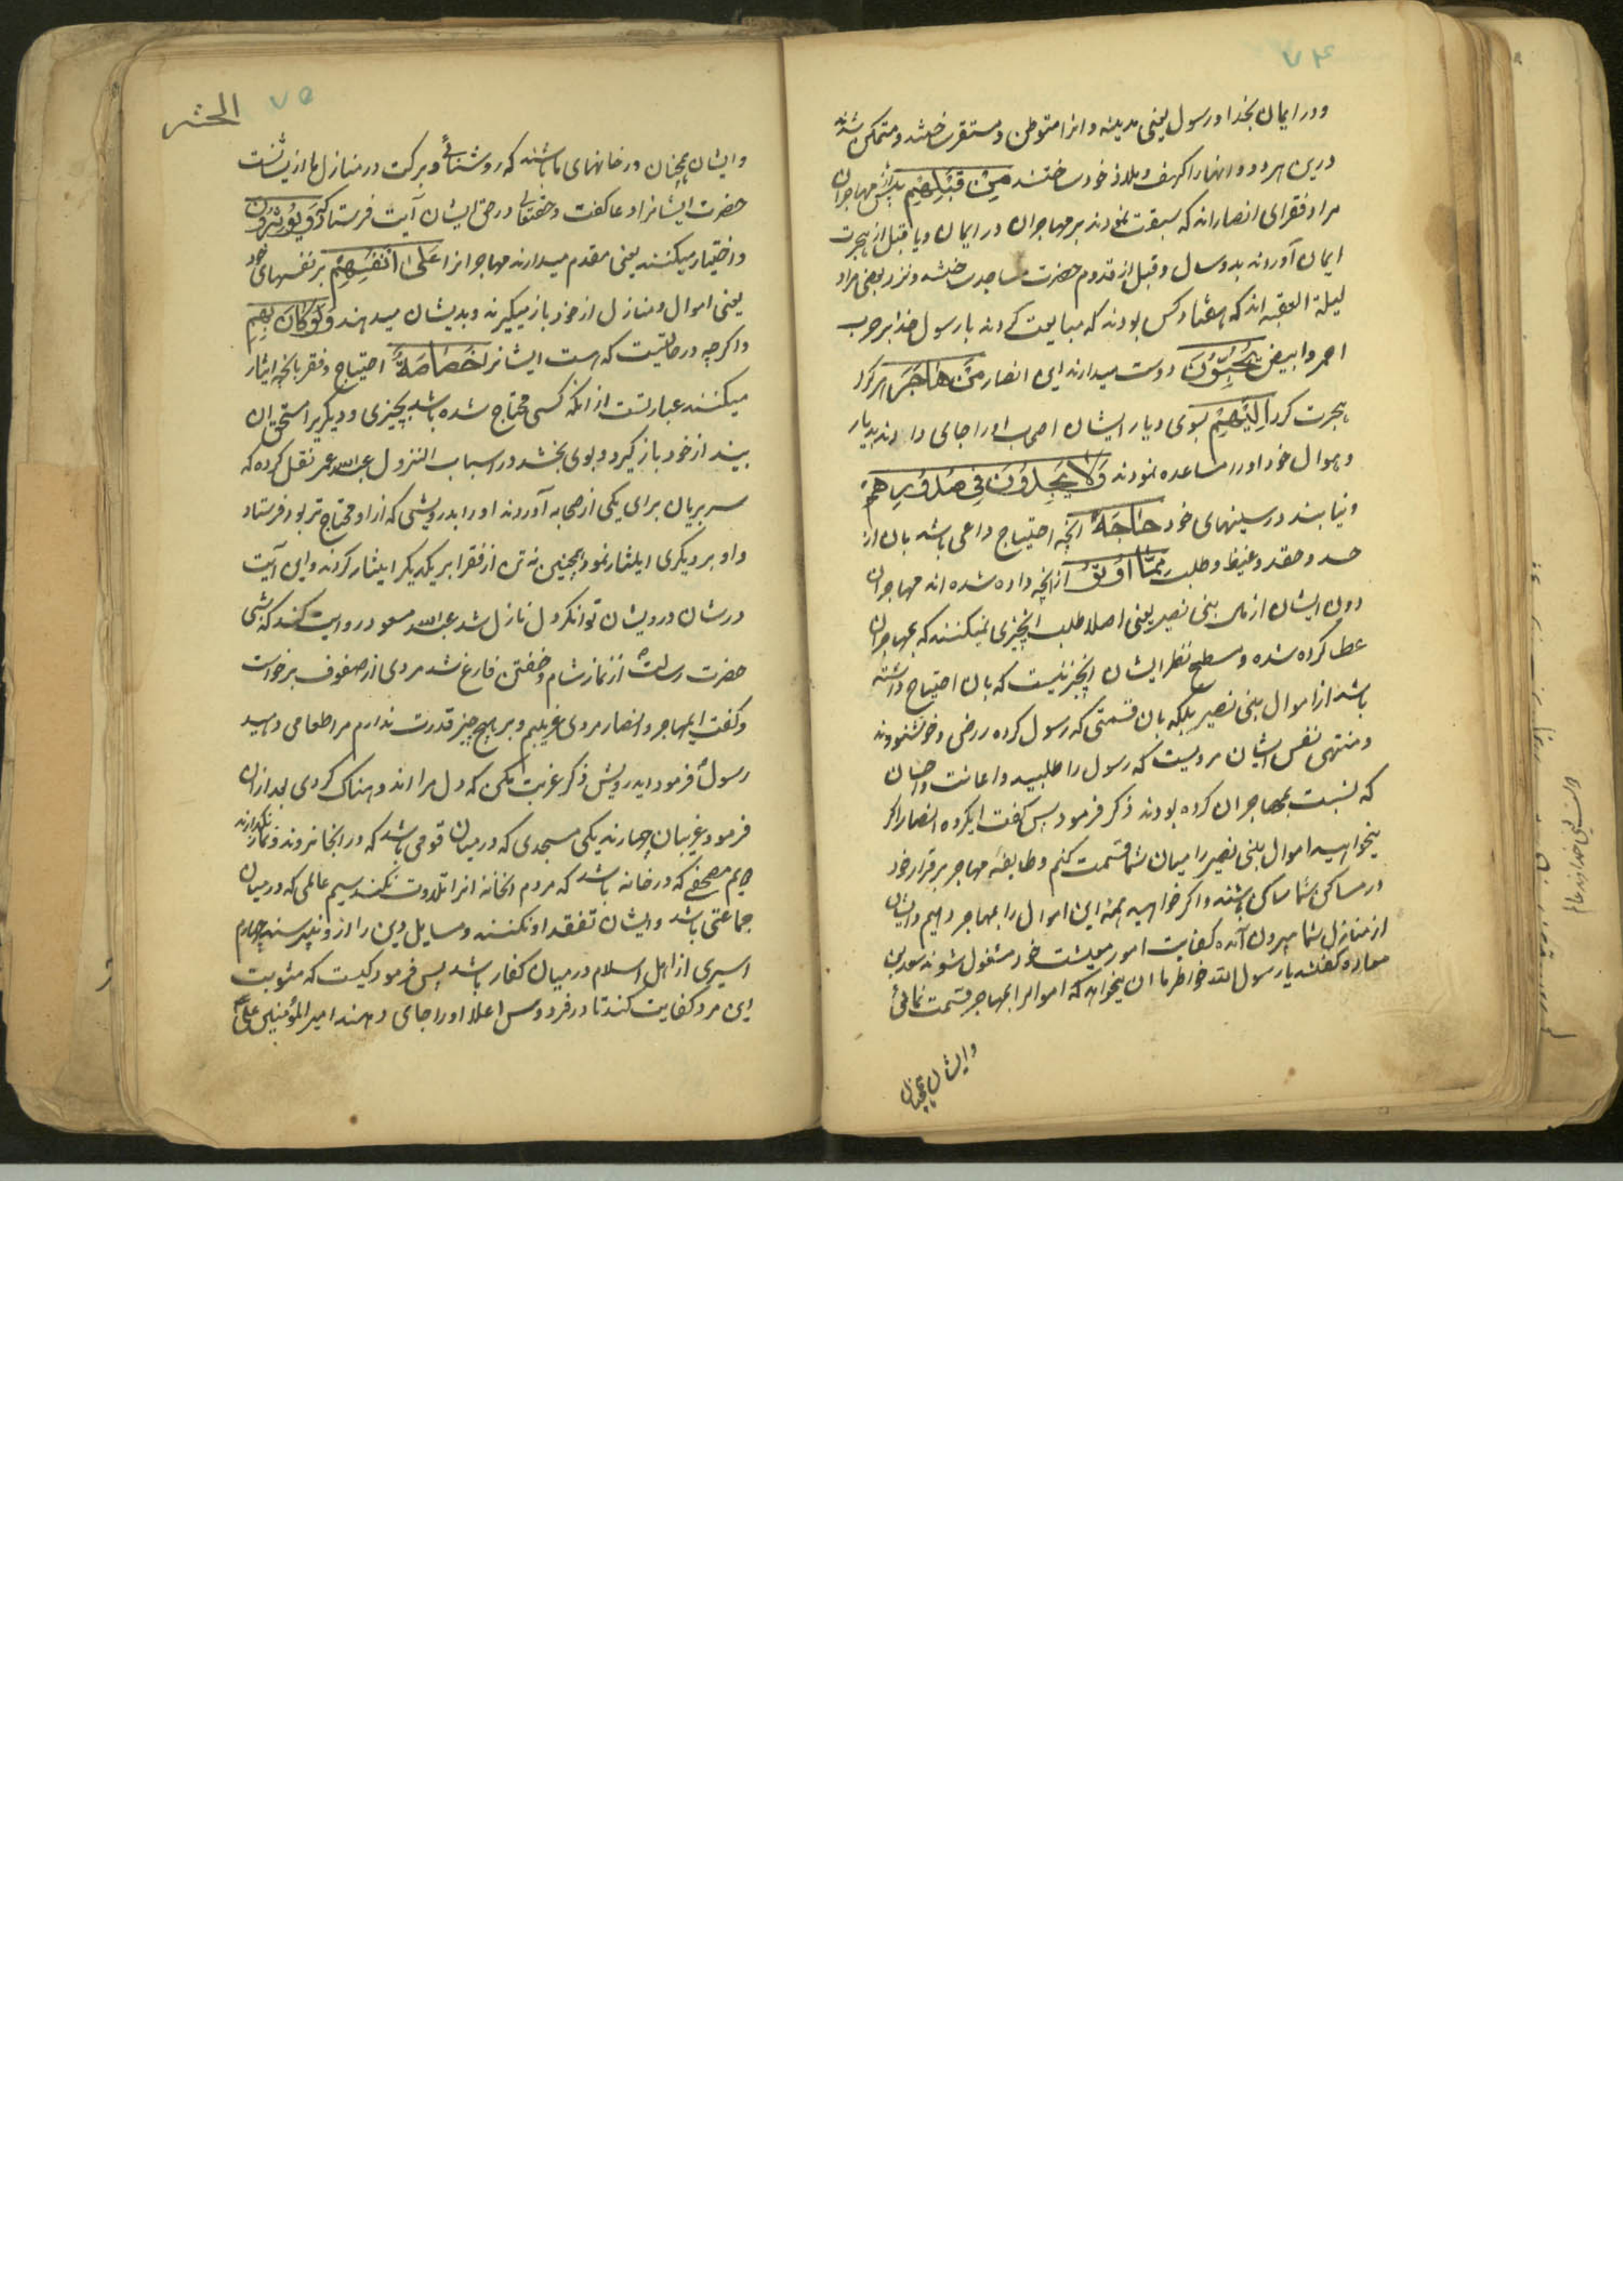 ۷۴
و در ایمان بخدا و رسول یعنی مدینه و انرا متوطن و مستقر ساختند و متمکن شدند
درین هر دو و انهارا کهف و ملاذ خود ساختند مِنْ قَبْلِهِمْ پیش از مهاجران
مراد فقرای انصارانه که سبقت نمودند بر مهاجران در ایمان و یا قبل از هجرت
ایمان آوردند بدو سال و قبل از قدوم حضرت مساجد ساختند و نزد بعضی مراد
لیلة العقبه اند که هفتاد کس بودند که مبایعت کردند با رسول خدا بر حرب
احمر و ابیض یُحِبُّونَ دوست میدارند این انصار مَنْ هَاجَرَ هر کرا
هجرت کرد اِلَیْهِمْ بسوی دیار ایشان اصحاب اورا جای دادند بدیار
و موال خود اورا مساعده نمودند وَلَا یَجِدُونَ فِی صُدُورِهِمْ
و نیابند در سینهای خود حَاجَةً انچه احتیاج داعی باشد بان از
حسد و حقد و غیظ و طلب مِمَّا اُوتُوا از انچه داده شده اند مهاجران
دون ایشان از مال بنی نضیر یعنی اصلا طلب انچیزی نمیکنند که بمهاجران
عطا کرده شده و مسطح نظر ایشان انچیز نیست که بان احتیاج داشته
باشد از اموال بنی نضیر بلکه بان قسمتی که رسول کرده راضی و خوشنودند
و منتهی نفس ایشان مرویست که رسول را طلبید و اعانت و احسان
که نسبت بمهاجران کرده بودند ذکر فرمود پس گفت ایکروه انصار اگر
میخواهید اموال بنی نضیر را میان شما قسمت کنم و طایفه مهاجر برقرار خود
در مساکن شما ساکن باشند و اگر خواهید همه این اموال را بمهاجر دهیم و ایشان
از منازل شما بیرون آنده کفایت امور معیشت خود مشغول شوند سعد بن
معاده گفتند یا رسول الله خواطر ما ان میخواهد که اموالرا بمهاجر قسمت نمائی
و ایشان همچنان
الحشر ۷۵
و ایشان همچنان در خانهای ما باشند که روشنائی و برکت در منازل ما از یشانست
حضرت ایشانرا دعا گفت و حقتعالی در حق ایشان آیت فرستاد که وَیُؤْثِرُونَ
و اختیار میکنند یعنی مقدم میدارند مهاجرانرا عَلٰی اَنْفُسِهِمْ بر نفسهای خود
یعنی اموال و منازل از خود باز میگیرند و بدیشان میدهند وَلَوْ کَانَ بِهِمْ
و اگر چه در حالتیست که هست ایشانرا خَصَاصَةٌ احتیاج و فقر بانچه ایثار
میکنند عبارتست از انکه کسی محتاج شده باشد بچیزی و دیگریرا مستحق ان
بیند از خود باز گیرد و بوی بخشد در اسباب النزول عبدالله عمر نقل کرده که
سر بریان برای یکی از صحابه آوردند او را بدرویشی که از او محتاج تر بود فرستاد
و او بر دیگری ایثار نمود همچنین نه تن از فقرا بر یکدیگر ایثار کردند و این آیت
در شان درویشان توانگر دل نازل شد عبدالله مسعود روایت کند که شبی
حضرت رسالت از نماز شام و خفتن فارغ شد مردی از صفوف برخواست
و گفت ایمهاجر و انصار مردی غریبم و بر هیچ چیز قدرت ندارم مرا طعامی دهید
رسول فرمود ایدرویش ذکر غربت مکن که دل مرا اندوهناک کردی بعد از ان
فرمود غریبان چهارند یکی مسجدی که در میان قومی باشد که در انجا نروند و نماز نگذارند
دیم مصحفی که در خانه باشد که مردم انخانه انرا تلاوت نکنند سیم عالمی که در میان
جماعتی باشد و ایشان تفقد او نکنند و مسایل دین را از او نپرسند چهارم
اسیری از اهل اسلام در میان کفار باشد پس فرمود کیست که مئونت
این مرد کفایت کند تا در فردوس اعلا اورا جای دهند امیرالمؤمنین علی